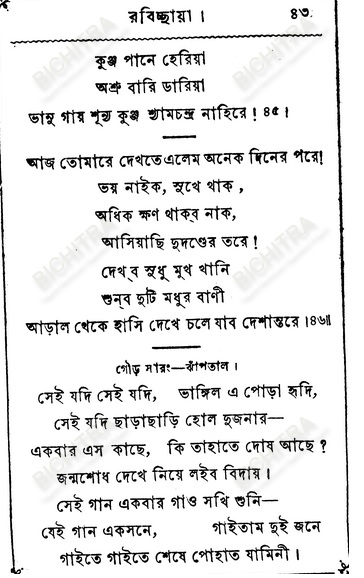 রবিচ্ছায়া। ৪৩
কুঞ্জ পানে হেরিয়া
অশ্রু বারি ডারিয়া
ভানু গায় শূন্য কুঞ্জ শ্যামচন্দ্র নাহিরে! ৪৫।
আজ তোমারে দেখতে এলেম অনেক দিনের পরে!
ভয় নাইক, সুখে থাক,
অধিক ক্ষণ থাকব নাক,
আসিয়াছি দুদণ্ডের তরে!
দেখ্‌ব সুধু মুখ থানি
শুন্‌ব দুটি মধুর বাণী
আড়াল থেকে হাসি দেখে চলে যাব দেশান্তরে।৪৬॥
গৌড় সারং—ঝাঁপতাল।
সেই যদি সেই যদি, ভাঙ্গিল এ পোড়া হৃদি,
সেই যদি ছাড়াছাড়ি হোল দুজনার—
একবার এস কাছে, কি তাহাতে দোষ আছে?
জন্মশোধ দেখে নিয়ে লইব বিদায়।
সেই গান একবার গাও সখি শুনি—
যেই গান একসনে, গাইতাম দুই জনে
গাইতে গাইতে শেষে পোহাত যামিনী।
BICHITRA